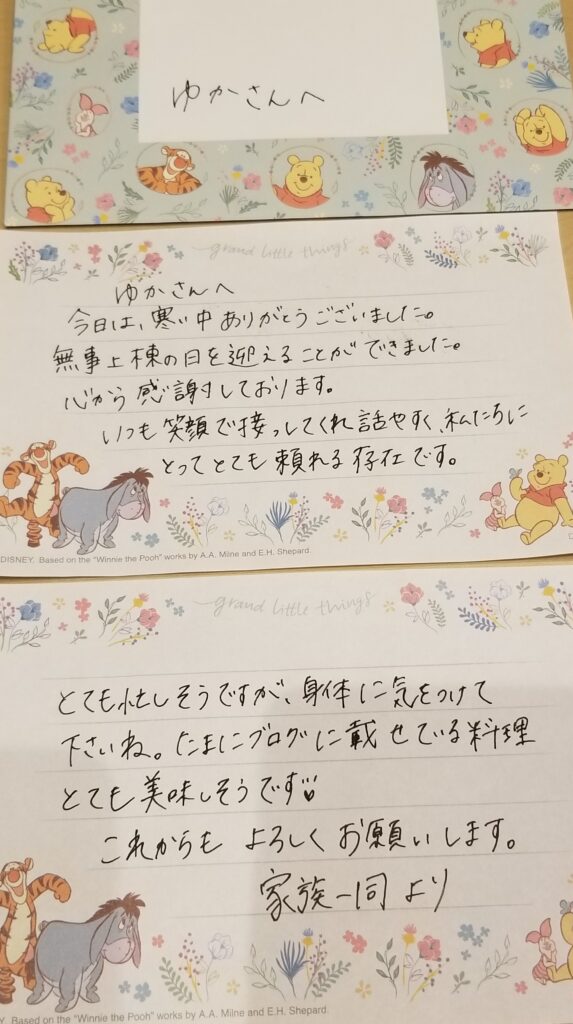 ゆかさんへ
grand little things
ゆかさんへ
今日は、寒い中ありがとうございました。
無事上棟の日を迎えることができました。
心から感謝しております。
いつも笑顔で接っしてくれ話やすく、私たちに
とってとても頼れる存在です。
DISNEY. Based on the "Winnie the Pooh" works by A.A. Milne and E.H. Shepard.
grand little things
とても忙しそうですが、身体に気をつけて
下さいね。たまにブログに載せている料理
とても美味しそうです♡
これからも よろしく お願いします。
家族一同 より
Y. Based on the "Winnie the Pooh" works by A.A. Milne and E.H. Shepard.